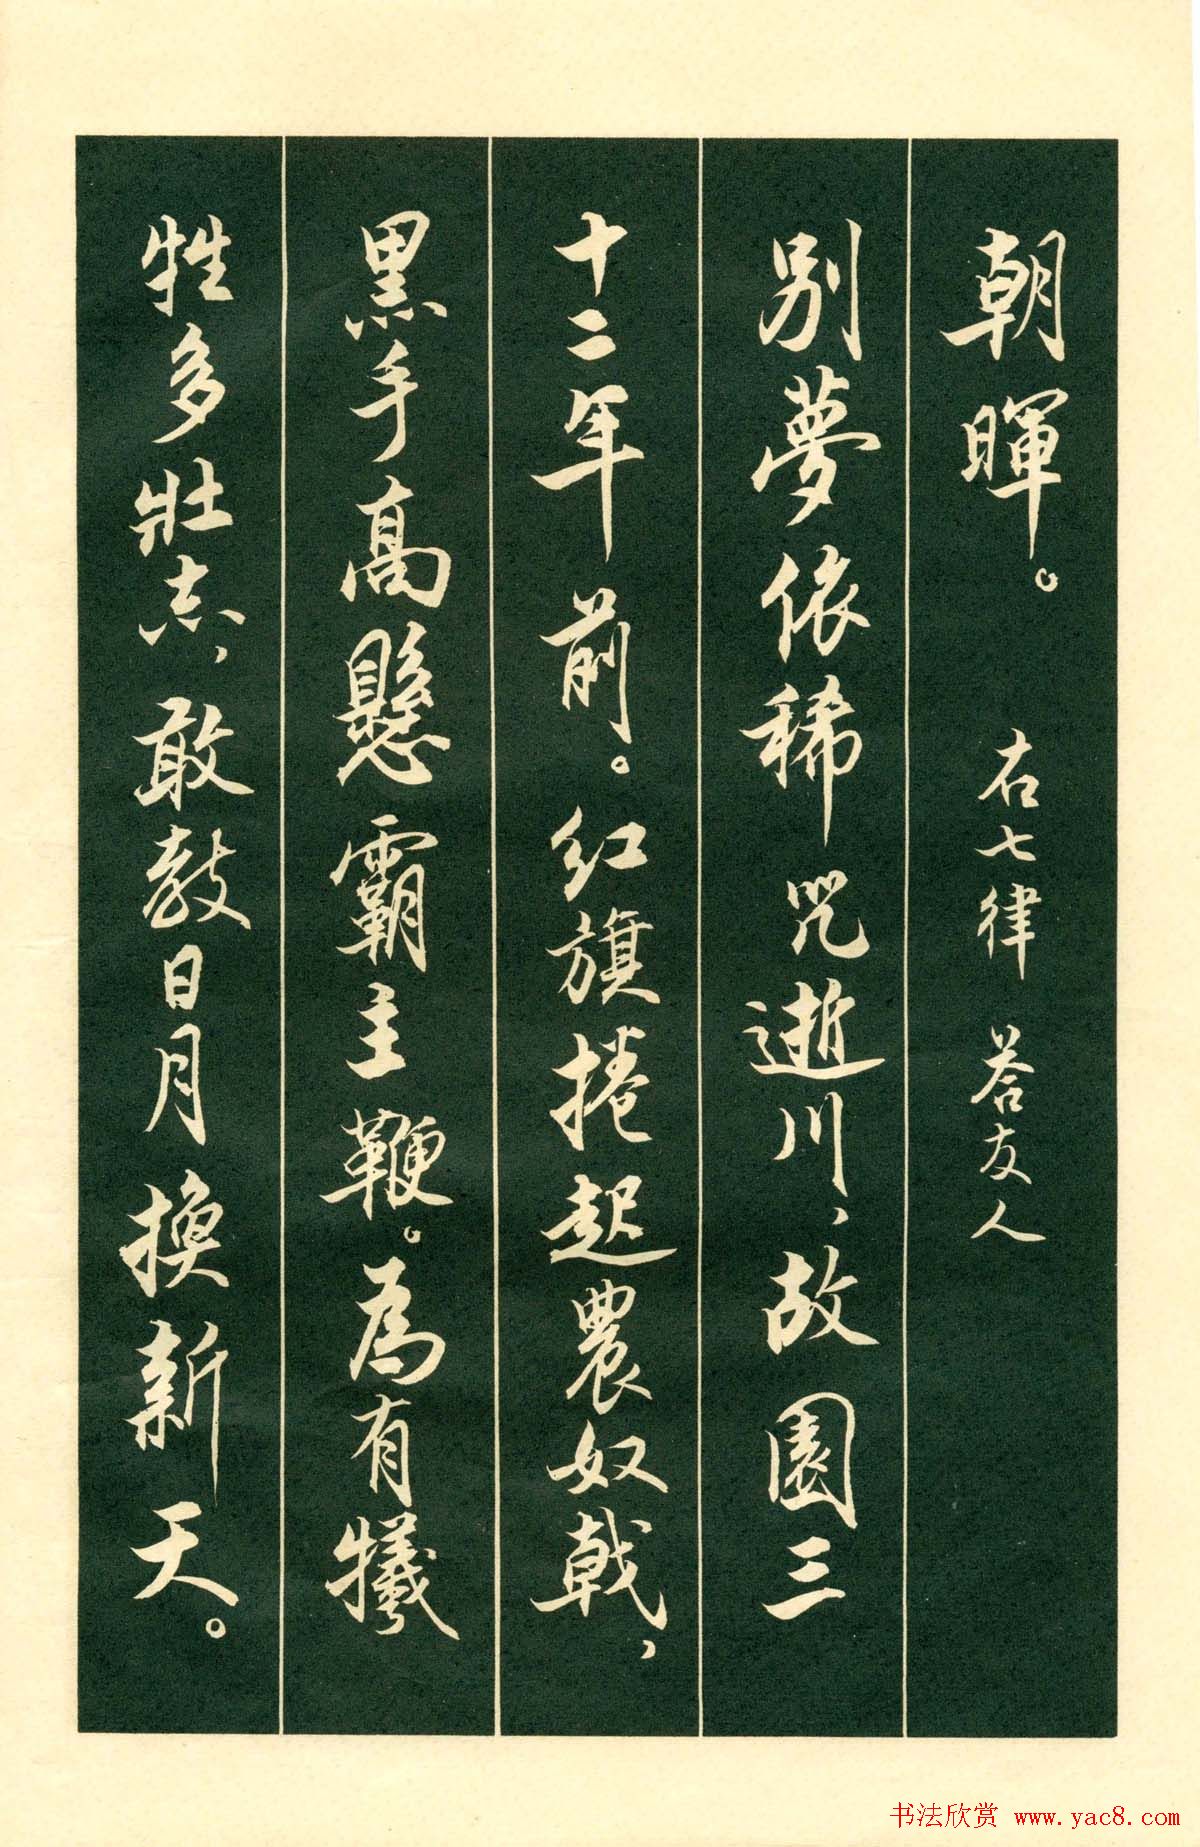 朝暉。 右七律 答友人
别夢依稀咒逝川、故園三
十二年前。红旗捲起農奴戟、
黑手高懸霸主鞭。為有犧
牲多壯志、敢教日月換新天。
书法欣赏 www.yac8.com